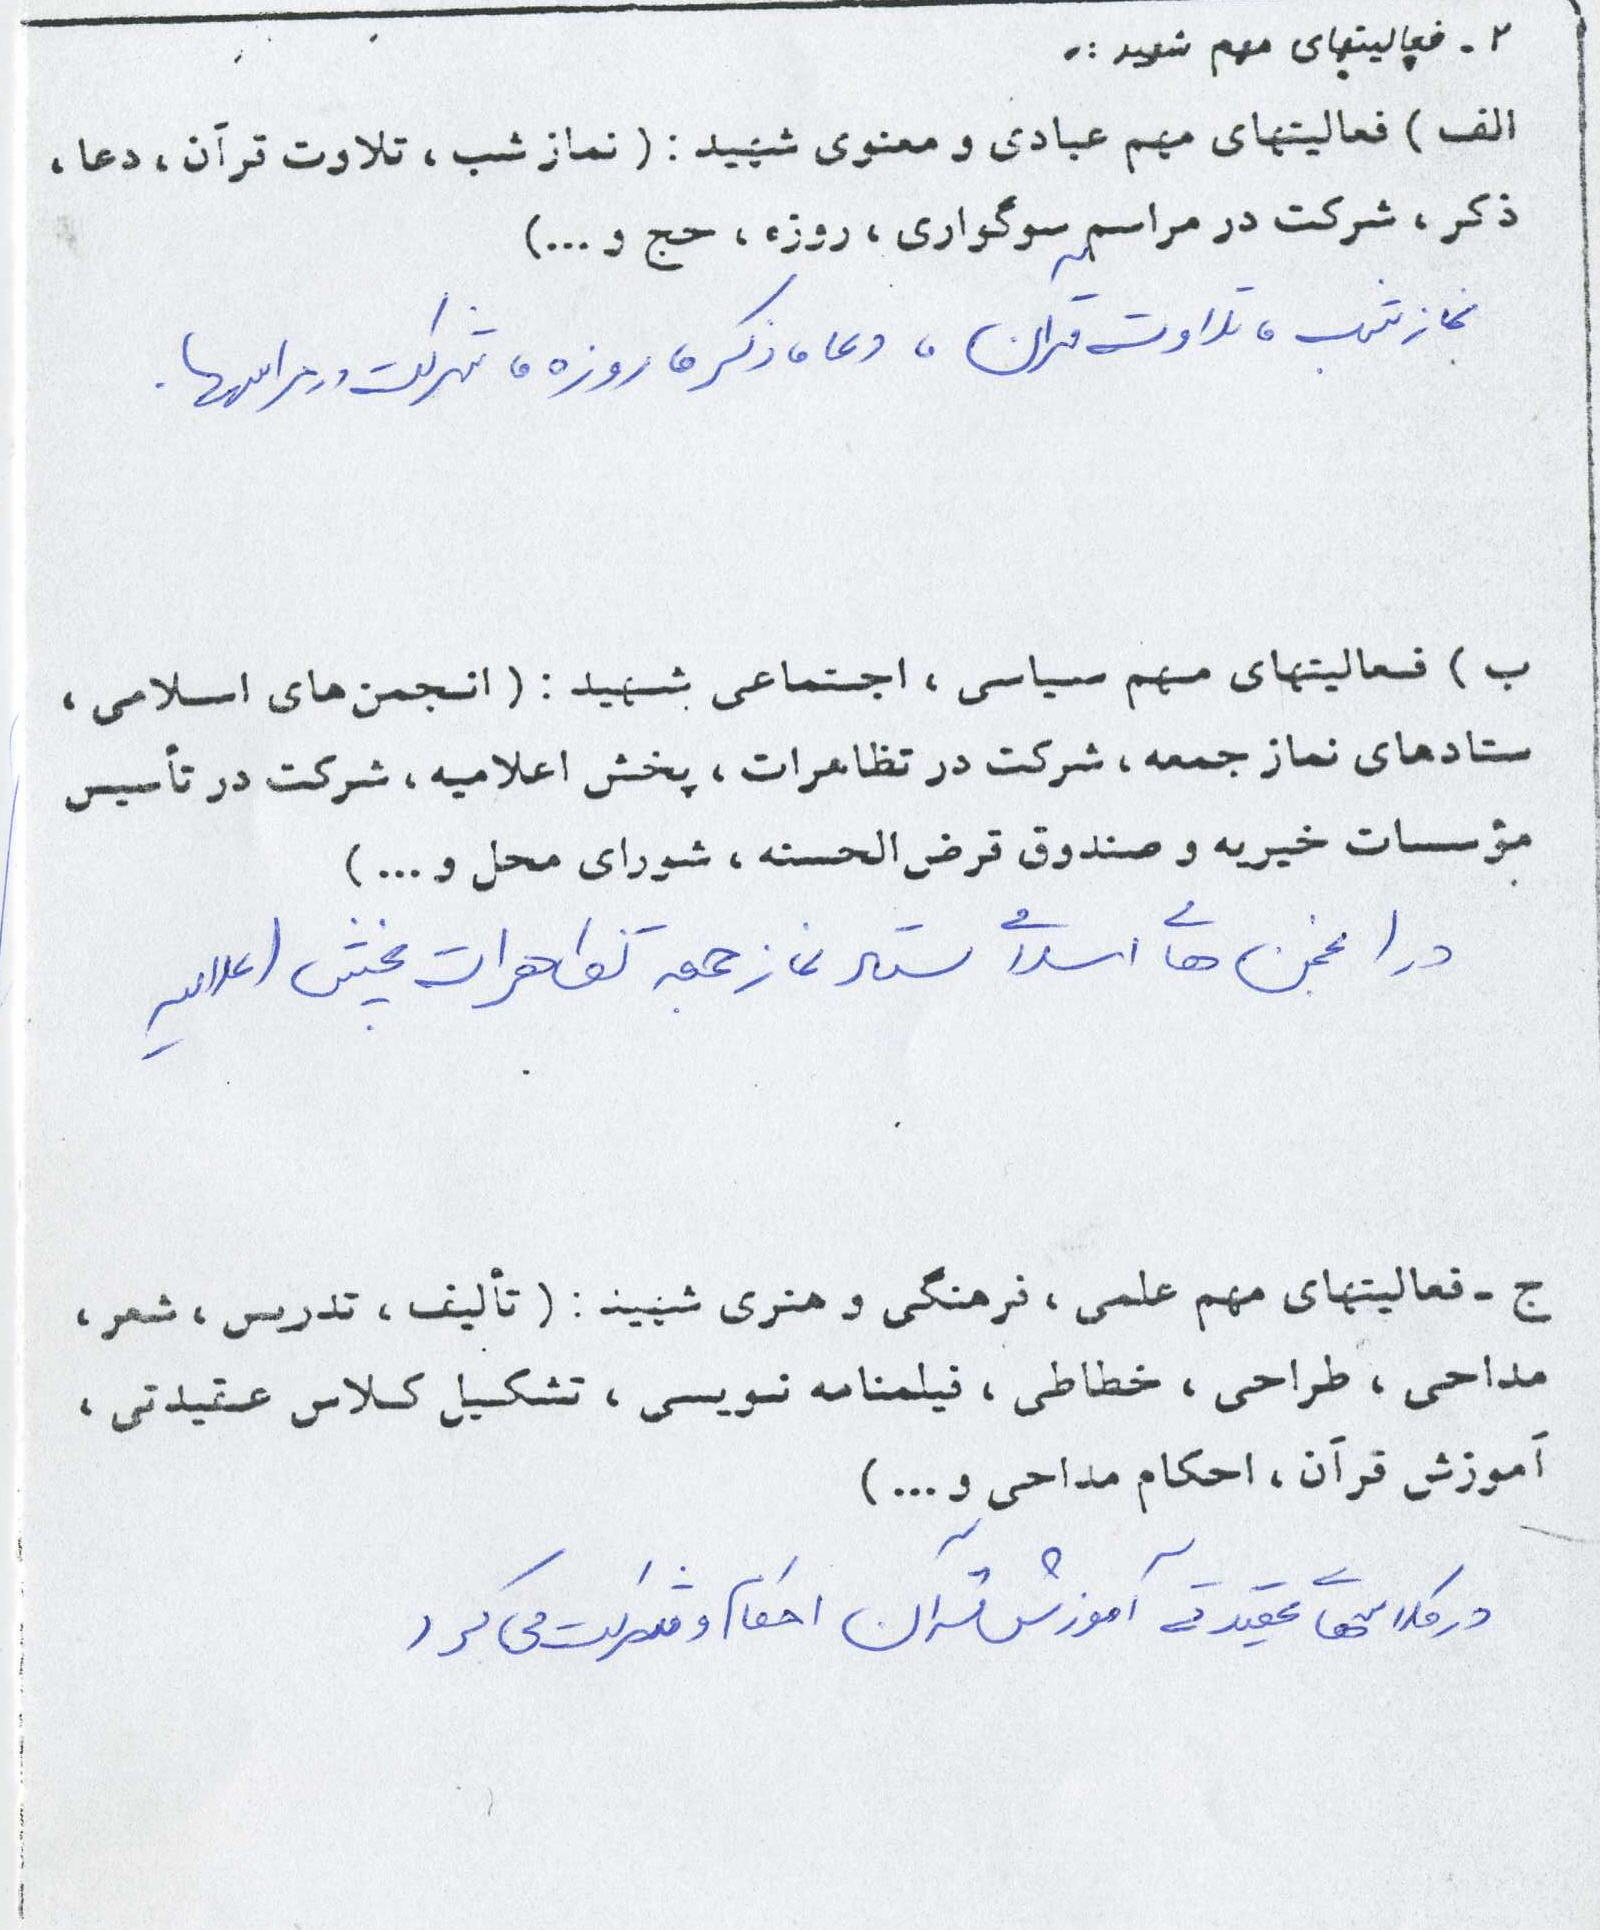 ۲ - فعالیتهای مهم شهید :
الف ) فعالیتهای مهم عبادی و معنوی شهید : ( نماز شب ، تلاوت قرآن ، دعا ،
ذکر ، شرکت در مراسم سوگواری ، روزه ، حج و ...)
نماز شب ، تلاوت قرآن ، دعا ، ذکر ، روزه ، شرکت در مراسمها .
ب ) فعالیتهای مهم سیاسی ، اجتماعی شهید : ( انجمن های اسلامی ،
ستادهای نماز جمعه ، شرکت در تظاهرات ، پخش اعلامیه ، شرکت در تأسیس
مؤسسات خیریه و صندوق قرض‌الحسنه ، شورای محل و ... )
در انجمن های اسلامی ستاد نماز جمعه تظاهرات پخش اعلامیه
ج - فعالیتهای مهم علمی ، فرهنگی و هنری شهید : ( تألیف ، تدریس ، شعر ،
مداحی ، طراحی ، خطاطی ، فیلمنامه نویسی ، تشکیل کلاس عقیدتی ،
آموزش قرآن ، احکام مداحی و ... )
در کلاسهای عقیدتی آموزش قرآن احکام و شرکت می کرد